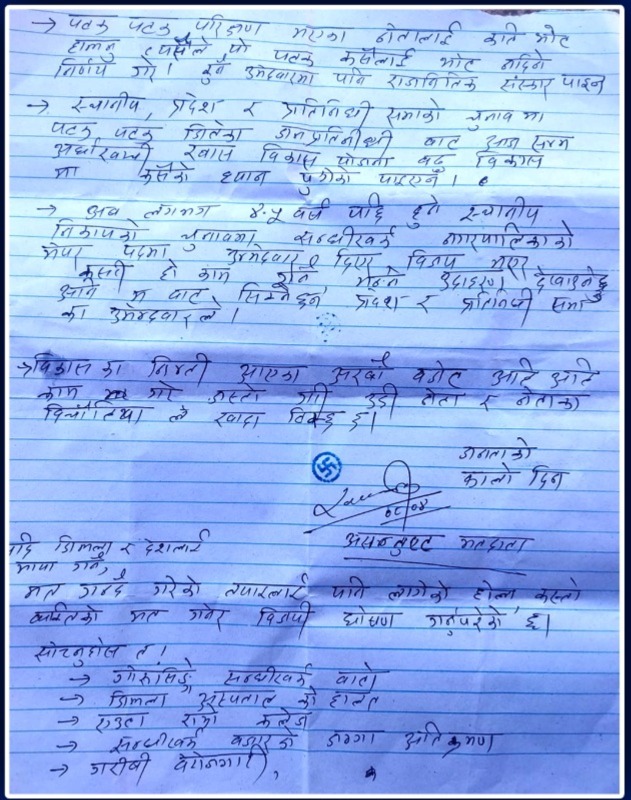 → पटक पटक परिक्षण भएका नेतालाई कति भोट
हाल्नु, त्यसैले यो पटक कसैलाई भोट नदिने
निर्णय गरे। कुनै उमेदवारमा पनि राजनितिक संस्कार पाइन
→ स्थानीय, प्रदेश र प्रतिनिधी सभाको चुनाव मा
पटक पटक जितेका जनप्रतिनीधी बाट आज सम्म
अर्घाखाँची खास विकास योजना बृहद विकास
मा कसैको ध्यान पुगेको पाइएन।
→ अब लगभग ४.५ वर्ष पछि हुने स्थानीय
निकायको चुनावमा सन्धीखर्क नगरपालिकाको
मेयर पदमा उमेदवारी दिएर विजय भएर
कसरी हो काम गर्ने भन्ने उदाहरण देखाउनेछु
अनि म बाट सिक्नेछन् प्रदेश र प्रतिनिधी सभा
का उमेदवार ले।
→ विकास का निम्ती आएका अरबौं बजेट अति अति
काम गरे जस्तो गरी उही नेता र नेताका
ले खादा छ।
जनताको
कालो दिन
०८/०४
असन्तुष्ट मतदाता
यदि जिल्ला र देशलाई
माया गर्ने,
मत गन्दै गरेको तपाइलाई पनि लागेको होला कस्तो
व्यक्तिको मत गनेर विजयी घोषणा गर्नुपरेको छ।
सोच्नुहोस त।
→ गोरुसिङ्गे सन्धीखर्क बाटो
→ जिल्ला अस्पताल को हालत
→ एउटा राम्रो कलेज
→ सन्धीखर्क बजारको जग्गा अतिक्रमण
→ गरीबी बेरोजगारी,